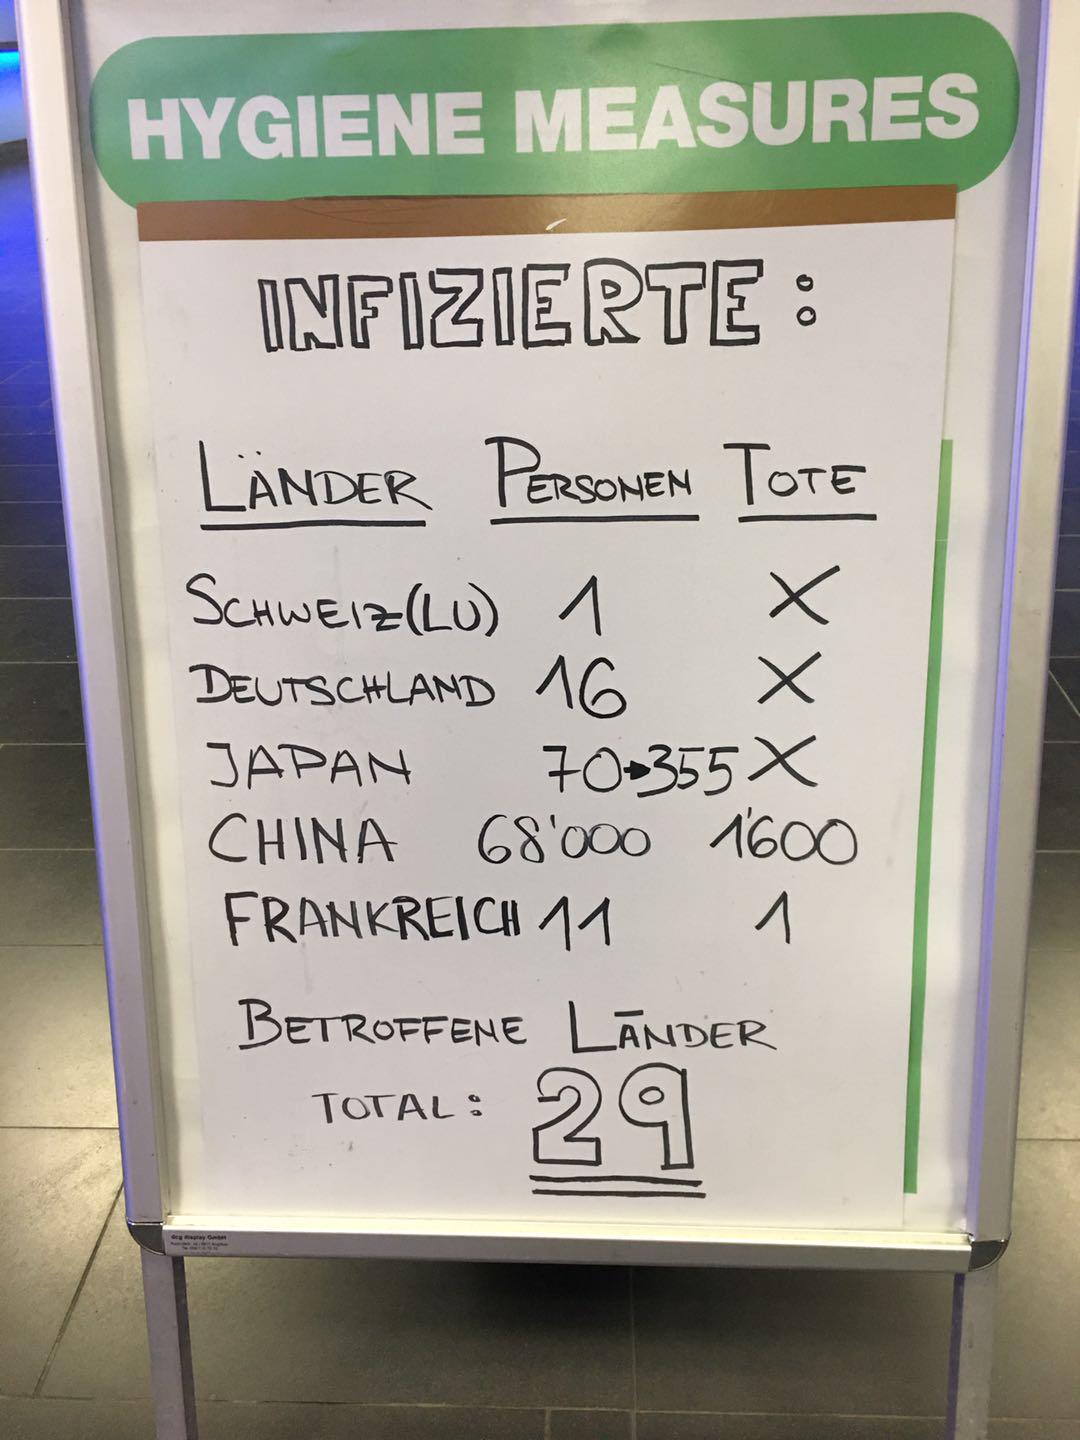 HYGIENE MEASURES
INFIZIERTE:
LÄNDER PERSONEN TOTE
SCHWEIZ(LU) 1 X
DEUTSCHLAND 16 X
JAPAN 70→355 X
CHINA 68'000 1'600
FRANKREICH 11 1
BETROFFENE LÄNDER
TOTAL: 29
dcg display GmbH